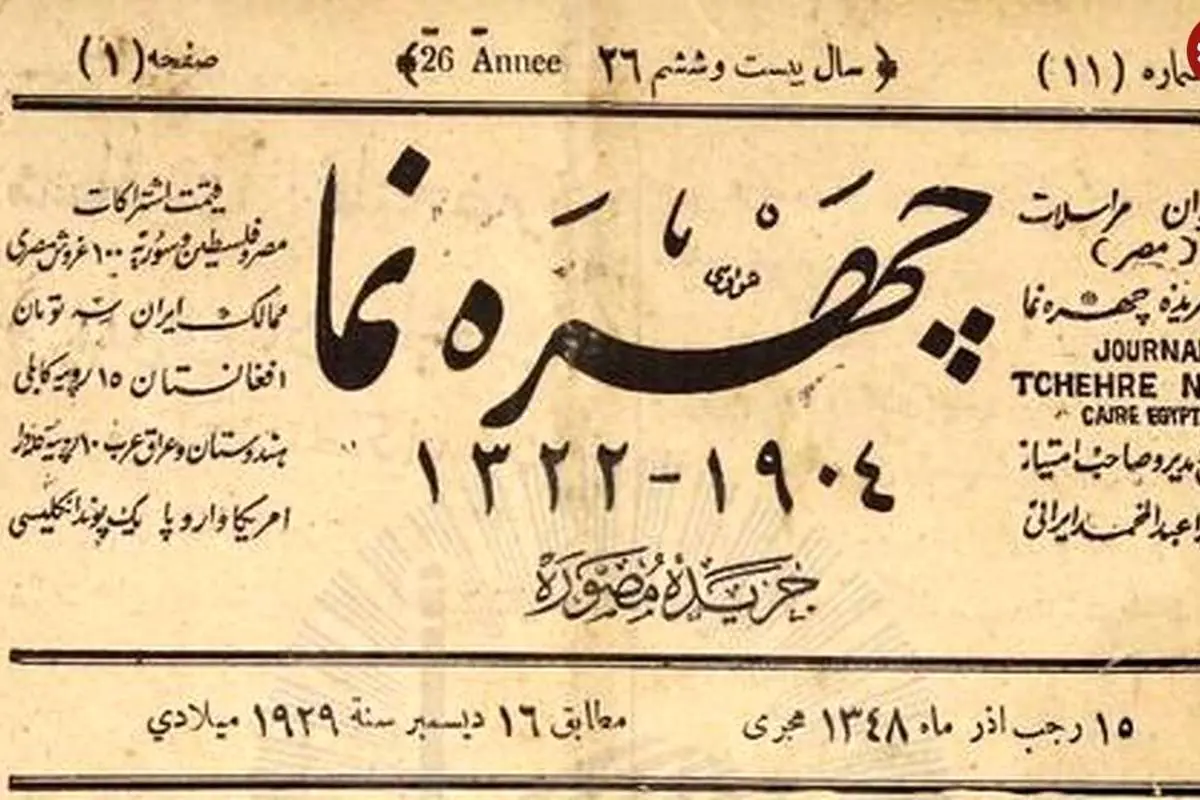 شماره (١١)
﴿ سال بیست و ششم ٢٦ 26 Annee ﴾
صفحه (١)
مراسلات
(مصر)
جریدۀ چهره نما
JOURNAL
TCHEHRE N
CAIRE EGYPT
مدیر و صاحب امتیاز
عبدالمحمد ایرانی
چهره نما
١٣٢٢-١٩٠٤
جریده مصوره
قیمت اشتراکات
مصر فلسطین و سوریه ١٠٠ غروش مصری
ممالک ایران سه تومان
افغانستان ١٥ روپیه کابلی
هندوستان و عراق عرب ١٠ روپیه
امریکا و اروپا یک پوند انگلیسی
١٥ رجب اذر ماه ١٣٤٨ هجری
مطابق ١٦ دیسمبر سنة ١٩٢٩ میلادي